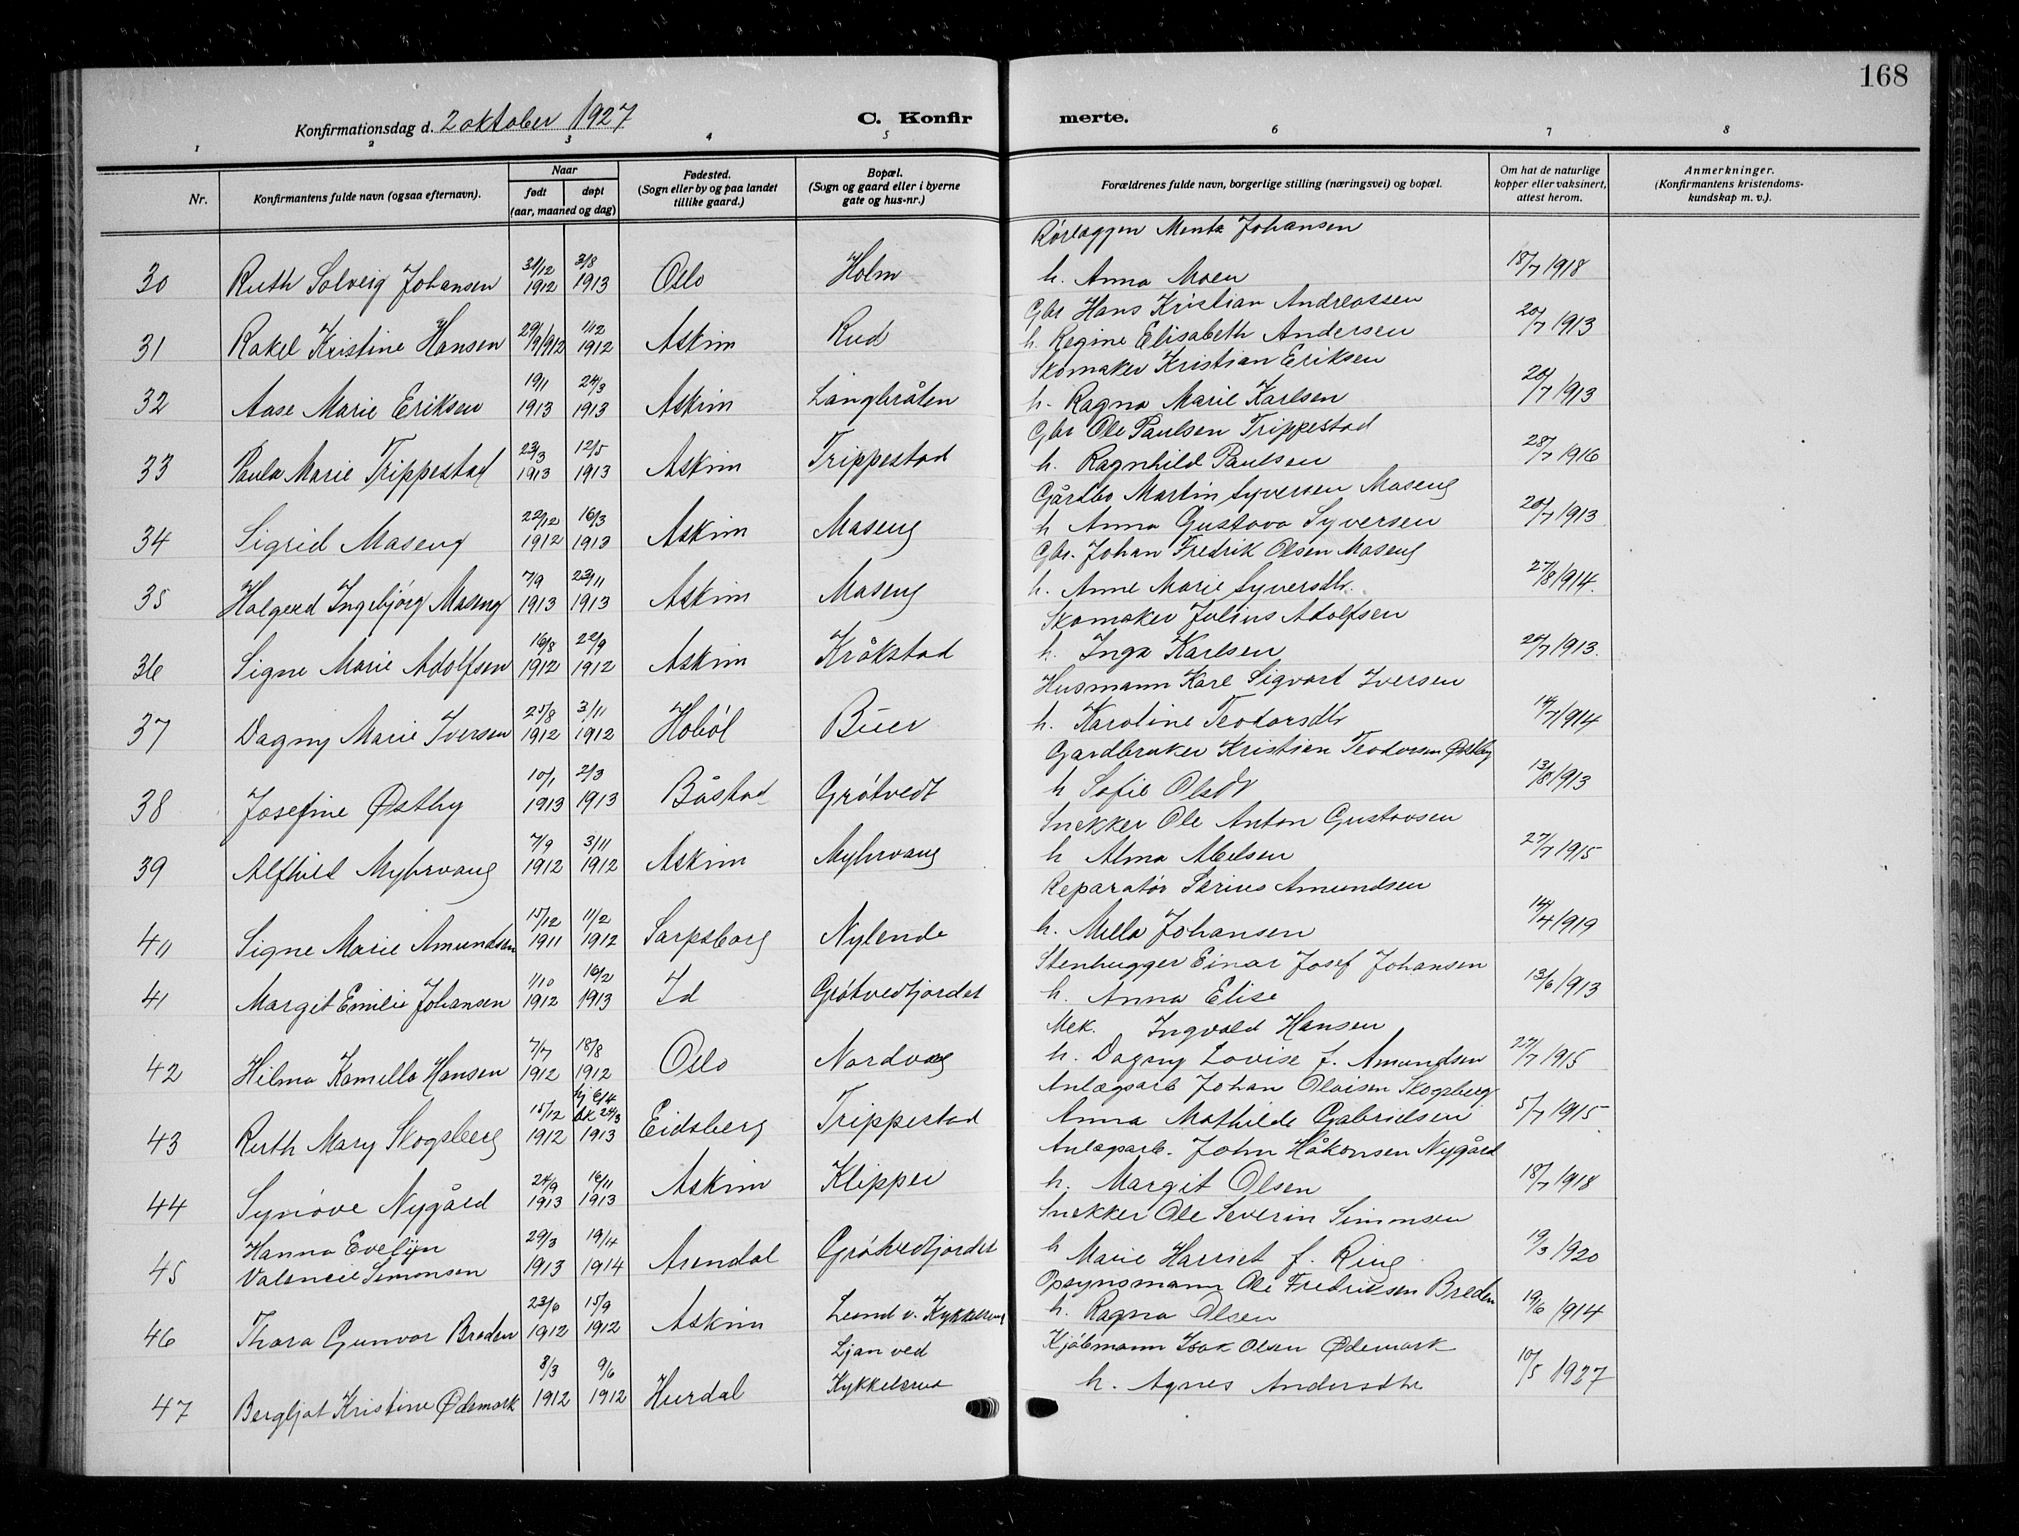 168
Konfirmationsdag d. 2 oktober 1927 C. Konfir merte.
1 2 3 4 5 6 7 8
Nr. Konfirmantens fulde navn (ogsaa efternavn). Naar født døpt (aar, maaned og dag) Fødested. (Sogn eller by og paa landet tillike gaard.) Bopæl. (Sogn og gaard eller i byerne gate og hus-nr.) Forældrenes fulde navn, borgerlige stilling (næringsvei) og bopæl. Om hat de naturlige kopper eller vaksinert, attest herom. Anmerkninger. (Konfirmantens kristendomskundskap m. v.).
Rørlæggen Johansen
30 Ruth Solveig Johansen 31/12 1912 3/8 1913 Oslo Holm h. Anna Moen 18/7 1918
Gbr Hans Kristian Andreassen
31 Rakel Kristine Hansen 29/9 1912 1/12 1912 Askim Rud h. Regine Elisabeth Andersen 20/7 1913
Skomaker Kristian Eriksen
32 Aase Marie Eriksen 19/1 1913 24/3 1913 Askim Langbråten h. Ragna Marie Karlsen 20/7 1913
Gbr Ole Paulsen Trippestad
33 Paula Marie Trippestad 23/3 1913 12/5 1913 Askim Trippestad h. Ragnhild Paulsen 28/7 1916
Gårdbr Martin Syversen Maseng
34 Sigrid Maseng 22/12 1912 16/3 1913 Askim Maseng h Anna Gustava Syversen 20/7 1913
Gbr. Johan Fredrik Olsen Maseng
35 Holgerd Ingebjørg Maseng 7/9 1913 23/11 1913 Askim Maseng h. Anne Marie Syversdtr. 27/8 1914.
Skomaker Julius Adolfsen
36 Signe Marie Adolfsen 16/8 1912 22/9 1912 Askim Kråkstad h. Inga Karlsen 20/7 1913.
Husmann Karl Sigvart Iversen
37 Dagny Marie Iversen 25/8 1912 3/11 1912 Hobøl Buer h. Karoline Teodorsdtr 14/7 1914
Gardbruker Kristian Teodorsen Østby
38 Josefine Østby 10/1 1913 2/3 1913 Båstad Grøtvedt h Sofie Olsdtr 13/8 1913
Snekker Ole Anton Gustavsen
39 Alfhild Myhrvang 7/9 1912 3/11 1912 Askim Myhrvang h Alma Abelsen 27/7 1915
Reparatør Amundsen
40 Signe Marie Amundsen 15/12 1911 11/2 1912 Sarpsborg Nylende h. Milla Johansen 14/4 1919
Stenhugger Einar Josef Johansen
41 Margit Emilie Johansen 1/10 1912 16/2 1913 Id Grøtvedtjordet h. Anna Elise 13/6 1913
Mek. Ingvald Hansen
42 Hilma Kamilla Hansen 7/7 1912 18/8 1912 Oslo Nordvag h. Dagny Lovise f. Amundsen 27/7 1915
Anlægsarb Johan Olaisen Skogsberg
43 Ruth Mary Skogsberg 15/12 1912 hj 6/4 st.k 24/3 1913 Eidsberg Trippestad Anna Mathilde Gabrielsen 5/7 1915
Anlægsarb. John Håkonsen Nygård
44 Synøve Nygård 24/9 1913 16/11 1913 Askim Klippei h. Margit Olsen 18/7 1918
Snekker Ole Severin Simonsen
45 Hanna Evelyn Valencie Simonsen 29/3 1913 19/4 1914 Arendal Grøtvedtjordet h Marie Harriet f. Ring 19/3 1920
Opsynsmann Ole Fredriksen Breden
46 Thora Gunvor Breden 23/6 1912 15/9 1912 Askim Lund v. Kykkelsrud h. Ragna Olsen 19/6 1914
Kjøbmann Isak Olsen Ødemark
47 Bergljot Kristine Ødemark 8/3 1912 9/6 1912 Hurdal Ljan ved Kykkelsrud h. Agnes Andersdtr 10/5 1927